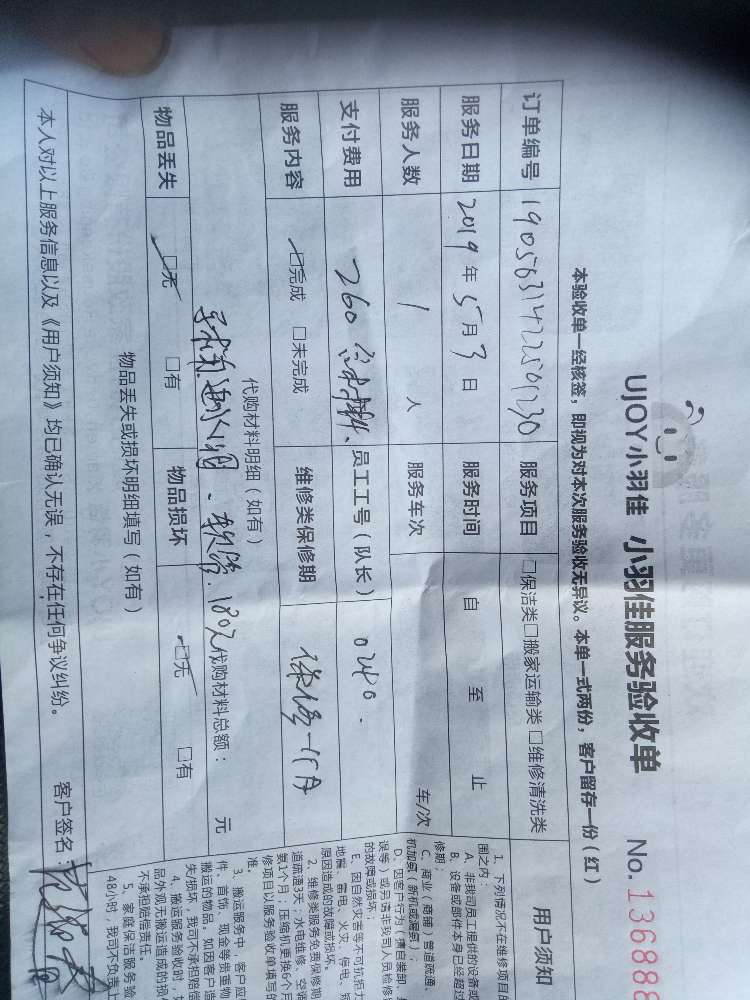 UJOY小羽佳 小羽佳服务验收单 No.136888
本验收单一经核签，即视为对本次服务验收无异议。本单一式两份，客户留存一份（红）
订单编号 服务项目 □保洁类□搬家运输类□维修清洗类
服务日期 2019年5月3日 服务时间 自 至 止
服务人数 1 人 服务车次 车/次
支付费用 260 员工工号（队长） 0240.
服务内容 □完成 □未完成 维修类保修期
代购材料明细（如有）
180元 代购材料总额： 元
物品丢失 □无 □有 物品损坏 □无 □有
物品丢失或损坏明细填写（如有）
本人对以上服务信息以及《用户须知》均已确认无误，不存在任何争议纠纷。 客户签名：
用户须知
1. 下列情况不在维修项目的
围之内：
A. 非我司员工提供的设备或
B. 设备或部件本身已经超过
修期；
C. 商业（商铺）管道疏通、
机加氨（新机或漏氨）；
D. 因客户行为（擅自装卸、
误等）或另请非我司人员检修
的故障或损坏；
E. 因自然灾害等不可抗拒力
地震、雷电、火灾、停电、
原因造成的故障或损坏。
2. 维修类服务免费保修期
道疏通3天；水电维修、空调
氨1个月；压缩机更换6个月
修项目以服务验收单填写的
准。
3. 搬运服务中，客户应
件、首饰、现金等贵重物
搬运的物品。如因客户造
失/损坏，我司不承担赔偿
4. 搬运服务验收时，如
品外观无搬运造成的损
不承担赔偿责任。
5. 家庭保洁服务验
48小时，我司不负责上